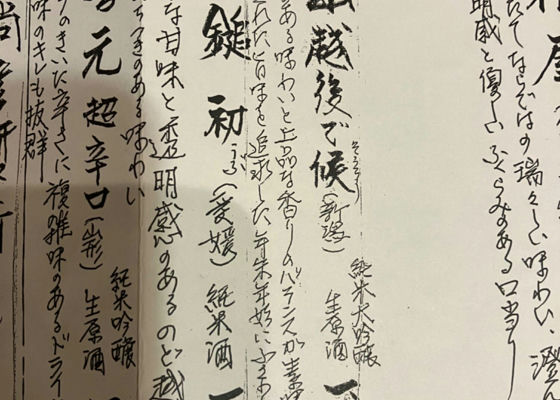 たてならではの瑞々しい味わい 澄
明感と優しいふくらみのある口当り
越後で候(新潟) 純米大吟醸
そうろう 生原酒
ある味わいと上品な香りのバランスが素
れた旨味を追求した年末年始にふさわ
鎚 初(愛媛) 純米酒 一
うぶ
な甘味と透明感のあるのど越
ちつきのある味わい
元 超辛口(山形) 純米吟醸
生原酒
のきいた辛さに複雑味のあるドライ
味のキレも抜群